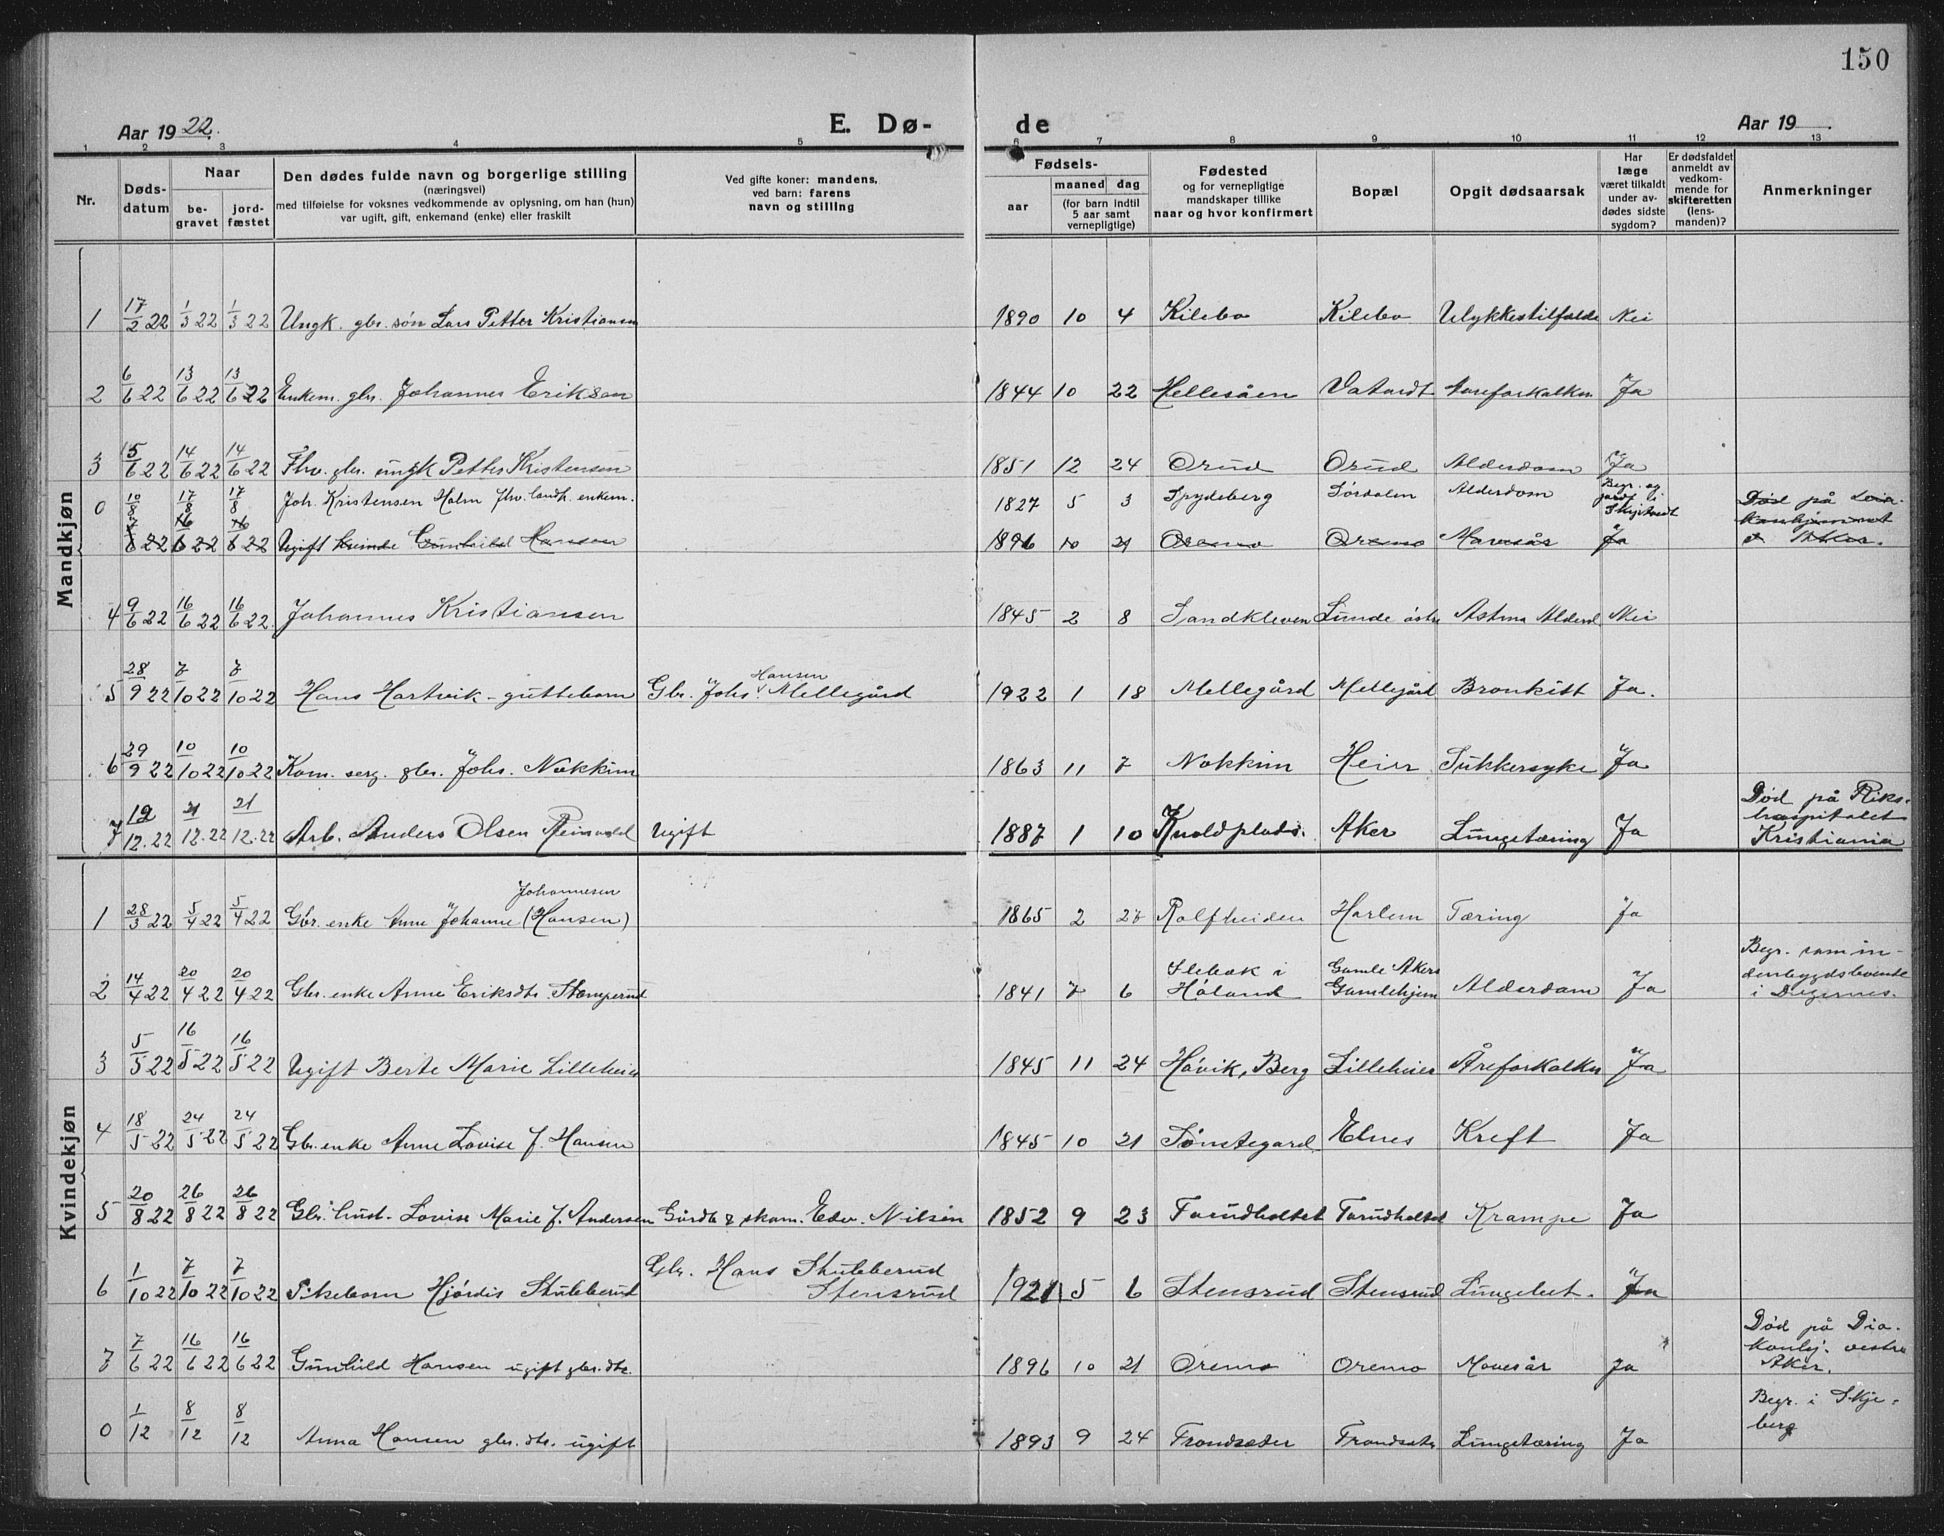 150
Aar 1922.
E. Dø-
de
Aar 19
1 2 3 4 5 6 7 8 9 10 11 12 13
Nr.
Døds-
datum
Naar
be-
gravet
jord-
fæstet
Den dødes fulde navn og borgerlige stilling
(næringsvei)
med tilføielse for voksnes vedkommende av oplysning, om han (hun)
var ugift, gift, enkemand (enke) eller fraskilt
Ved gifte koner: mandens,
ved barn: farens
navn og stilling
Fødsels-
aar
maaned
dag
(for barn indtil
5 aar samt
vernepligtige)
Fødested
og for vernepligtige
mandskaper tillike
naar og hvor konfirmert
Bopæl
Opgit dødsaarsak
Har
læge
været tilkaldt
under av-
dødes sidste
sygdom?
Er dødsfaldet
anmeldt av
vedkom-
mende for
skifteretten
(lens-
manden)?
Anmerkninger
Mandkjøn
1 17/2 22 1/3 22 1/3 22 Ungk. gbr. søn Lars Petter Kristiansen 1890 10 4 Kilebo Kilebo Ulykkestilfælde Nei
2 6/6 22 13/6 22 13/6 22 Enkem. gbr. Johannes Eriksen 1844 10 22 Hellesåen Vatvedt Aareforkalkn Ja
3 15/6 22 14/6 22 14/6 22 Fhv. gbr. ungk Petter Kristensen 1851 12 24 Orud Orud Alderdom Ja
0 10/8 17/8 17/8 Joh. Kristensen Holm fhv. landh. enkem. 1827 5 3 Spydeberg Sørdalen Alderdom Begr. og
jordf i
7/6 22 16/6 22 16/6 22 Ugift kvinde Gunhild Hansen 1896 10 21 Oremo Oremo Mavesår Ja
4 9/6 22 16/6 22 16/6 22. Johannes Kristiansen 1845 2 8 Sandkleven Lunde østre Astma Alderd. Nei
5 28/9 22 7/10 22 7/10 22 Hans Hartvik - guttebarn Gbr. Johs. Hansen Mellegård 1922 1 18 Mellegård Mellegård Bronkitt Ja.
6 29/9 22 10/10 22 10/10 22 Kom. serg. gbr. Johs. Nokkim 1863 11 7 Nokkim Heier Sukkersyke Ja
7 12/12.22 21/12.22 21/12.22 Arb. Anders Olsen Ugift 1887 1 10 Knoldplads. Aker Lungetæring Ja Død på Riks-
hospitalet
Kristiania
Kvindekjøn
Johannesen
1 28/3 22 5/4 22 5/4 22 Gbr. enke Anne Johanne (Hansen) 1865 2 Rolfheiden Harlem Tæring Ja
2 14/4 22 20/4 22 20/4 22 Gbr. enke Anne Eriksdtr. Stomperud 1841 7 6 Slebæk i
Høland Gamle Akers
Gamlehjem Alderdom Ja Begr. som in-
denbygdslevende
i
3 5/5 22 16/5 22 16/5 22 Ugift Berte Marie Lilleheier 1845 11 24 Høvik, Berg Lilleheier Åreforkalkn Ja
4 18/5 22 24/5 22 24/5 22 Gbr. enke Anne Lovise J. Hansen 1845 10 21 Sønstegard. Elnes Kreft Ja
5 20/8 22 26/8 22 26/8 22 Gbr. hust. Lovise Marie J. Andersen Gårdb & skom. Edv. Nilsen 1852 9 23 Tarudholtet Tarudholtet Krampe Ja
6 1/10 22 7/10 22 7/10 22 Pikebarn Hjørdis Skuleberud Gbr. Hans Skuleberud
Stensrud 1921 5 6 Stensrud Stensrud Lungebet. Ja
7 7/6 22 16/6 22 16/6 22 Gunhild Hansen ugift gbr. dtr. 1896 10 21 Oremo Oremo Mavesår Ja Død på Dia-
konhj. vestre
Aker.
0 1/12 8/12 8/12 Anna Hansen gbr. dtr. ugift 1893 9 24 Trondsæter Trondsætr Lungetæring Ja Begr. i Skje-
berg